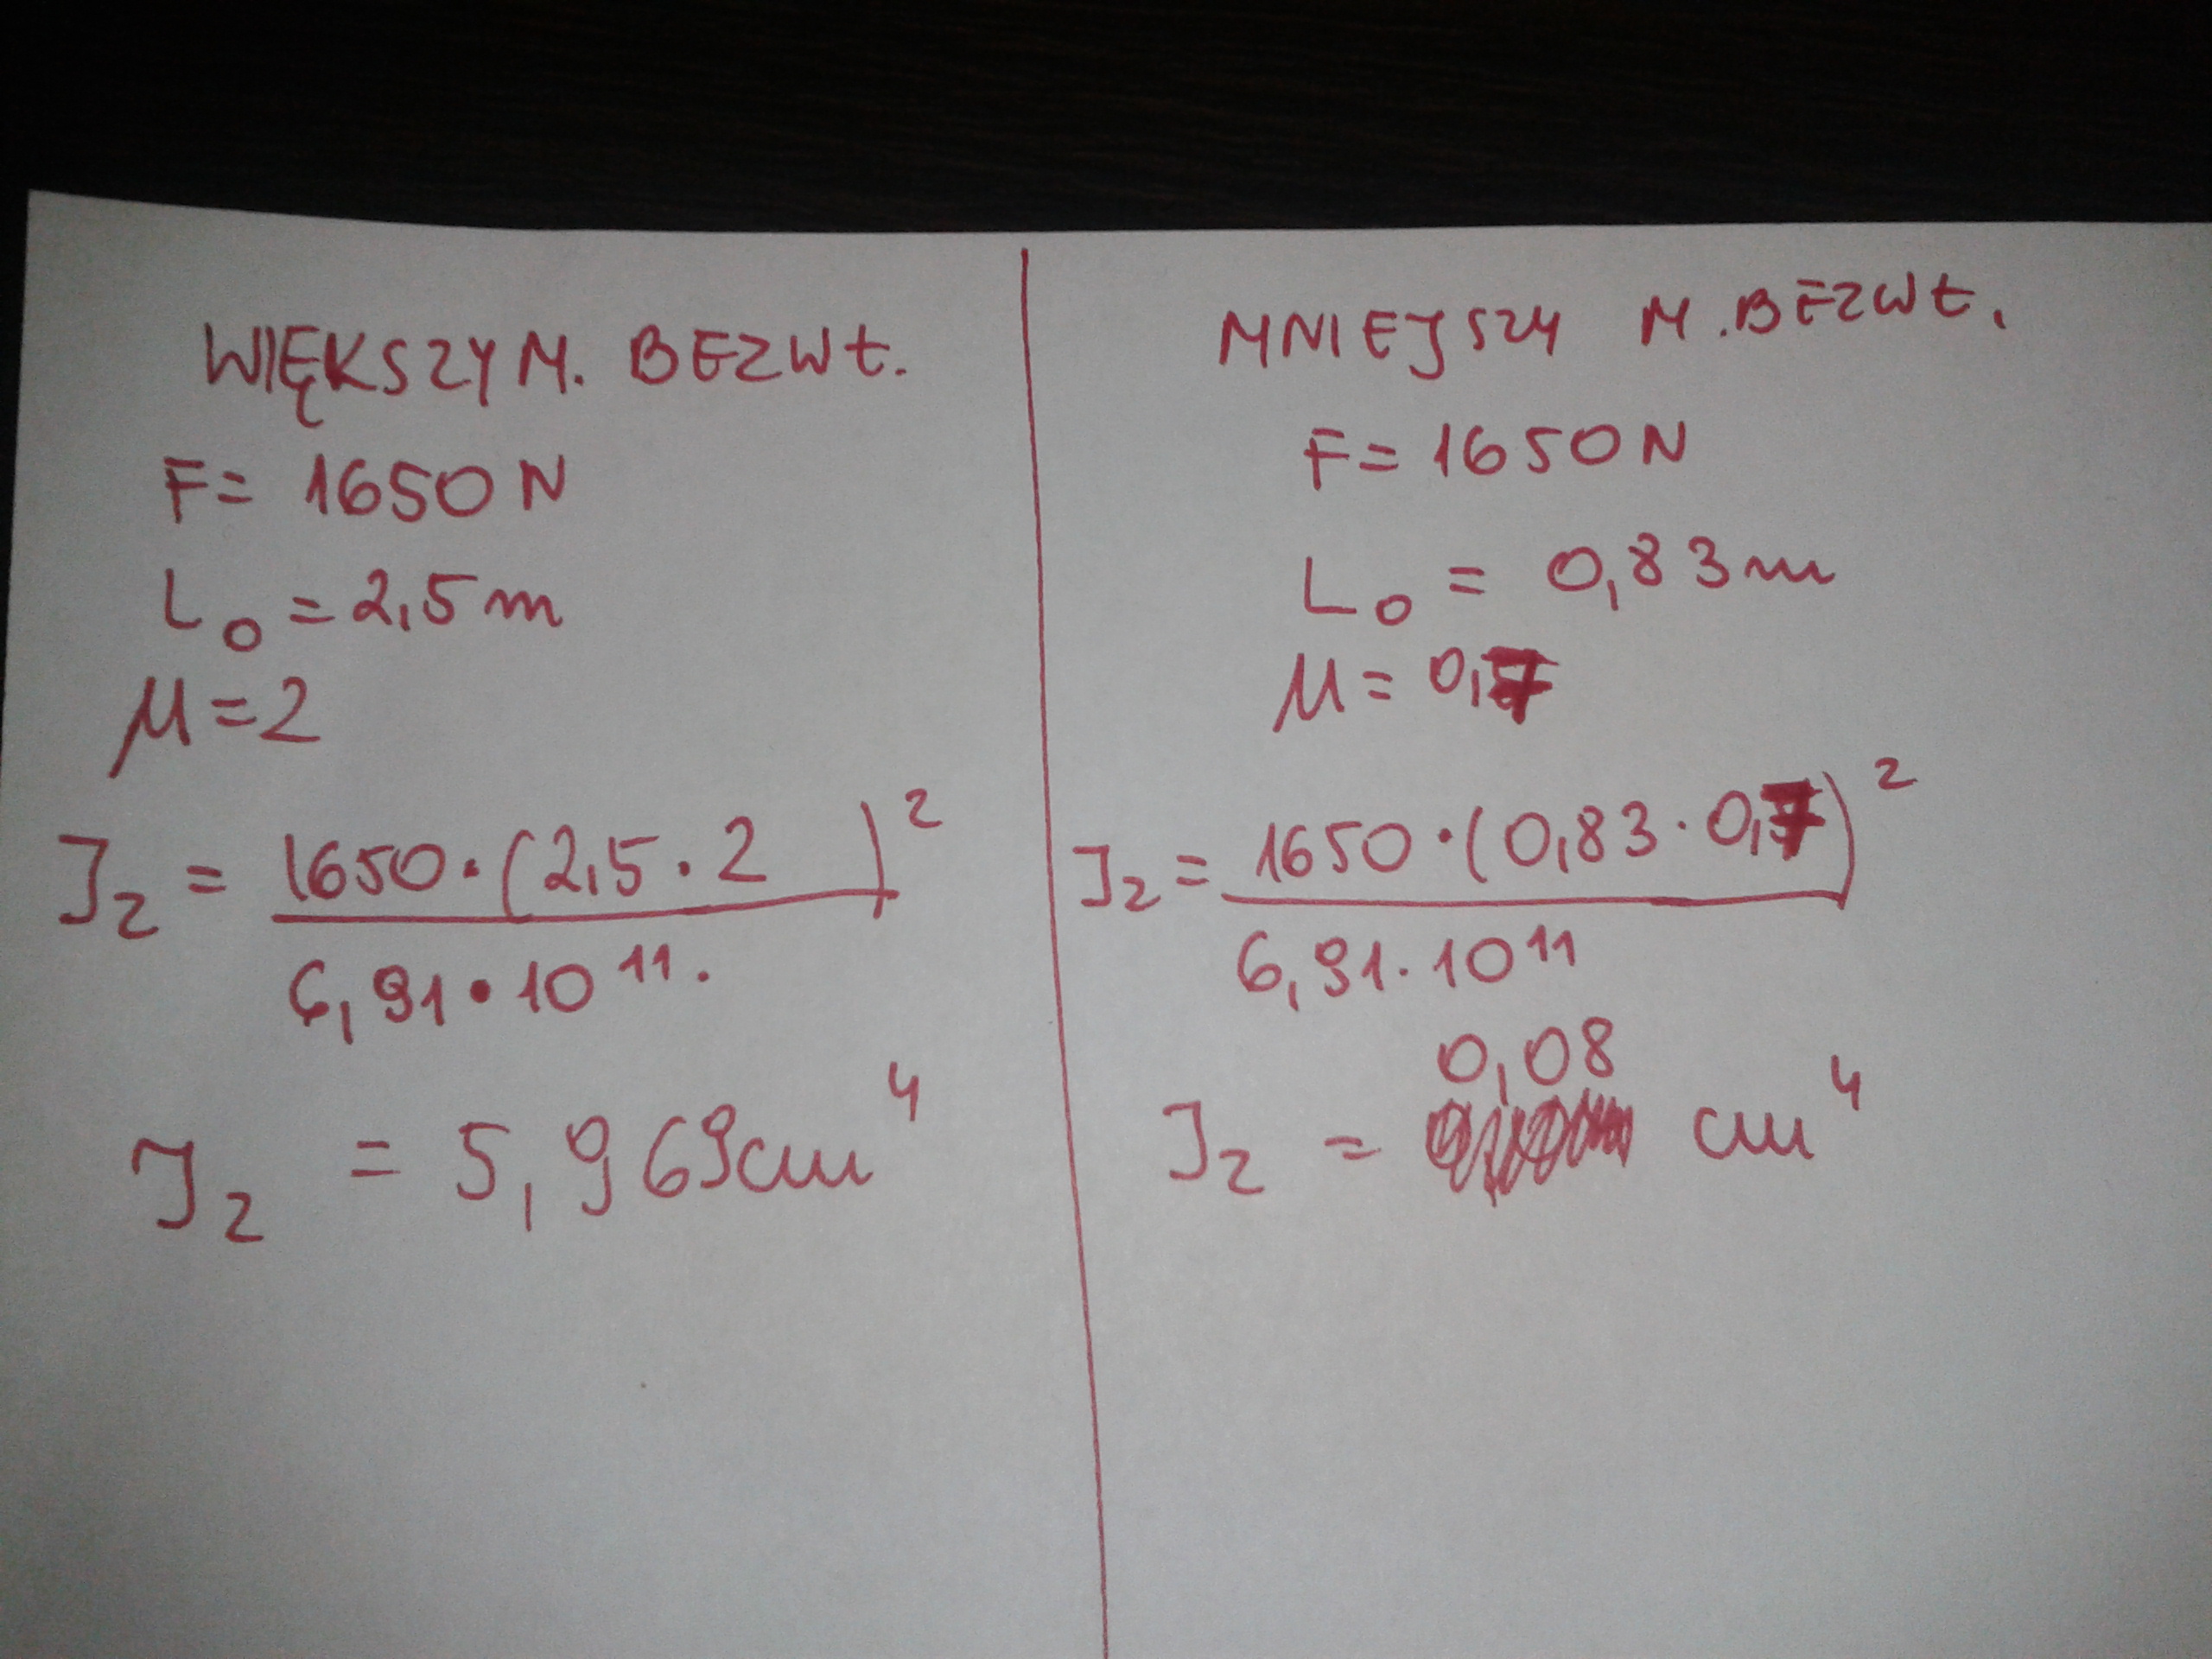 WIĘKSZY M. BEZWŁ.
F = 1650 N
L₀ = 2,5 m
μ = 2
I₂ = 1650 · (2,5 · 2)²
6,91 · 10¹¹.
I₂ = 5,969 cm⁴
MNIEJSZY M. BEZWŁ.
F = 1650 N
L₀ = 0,83 m
μ = 0,7
I₂ = 1650 · (0,83 · 0,7)²
6,91 · 10¹¹
0,08
I₂ = cm⁴